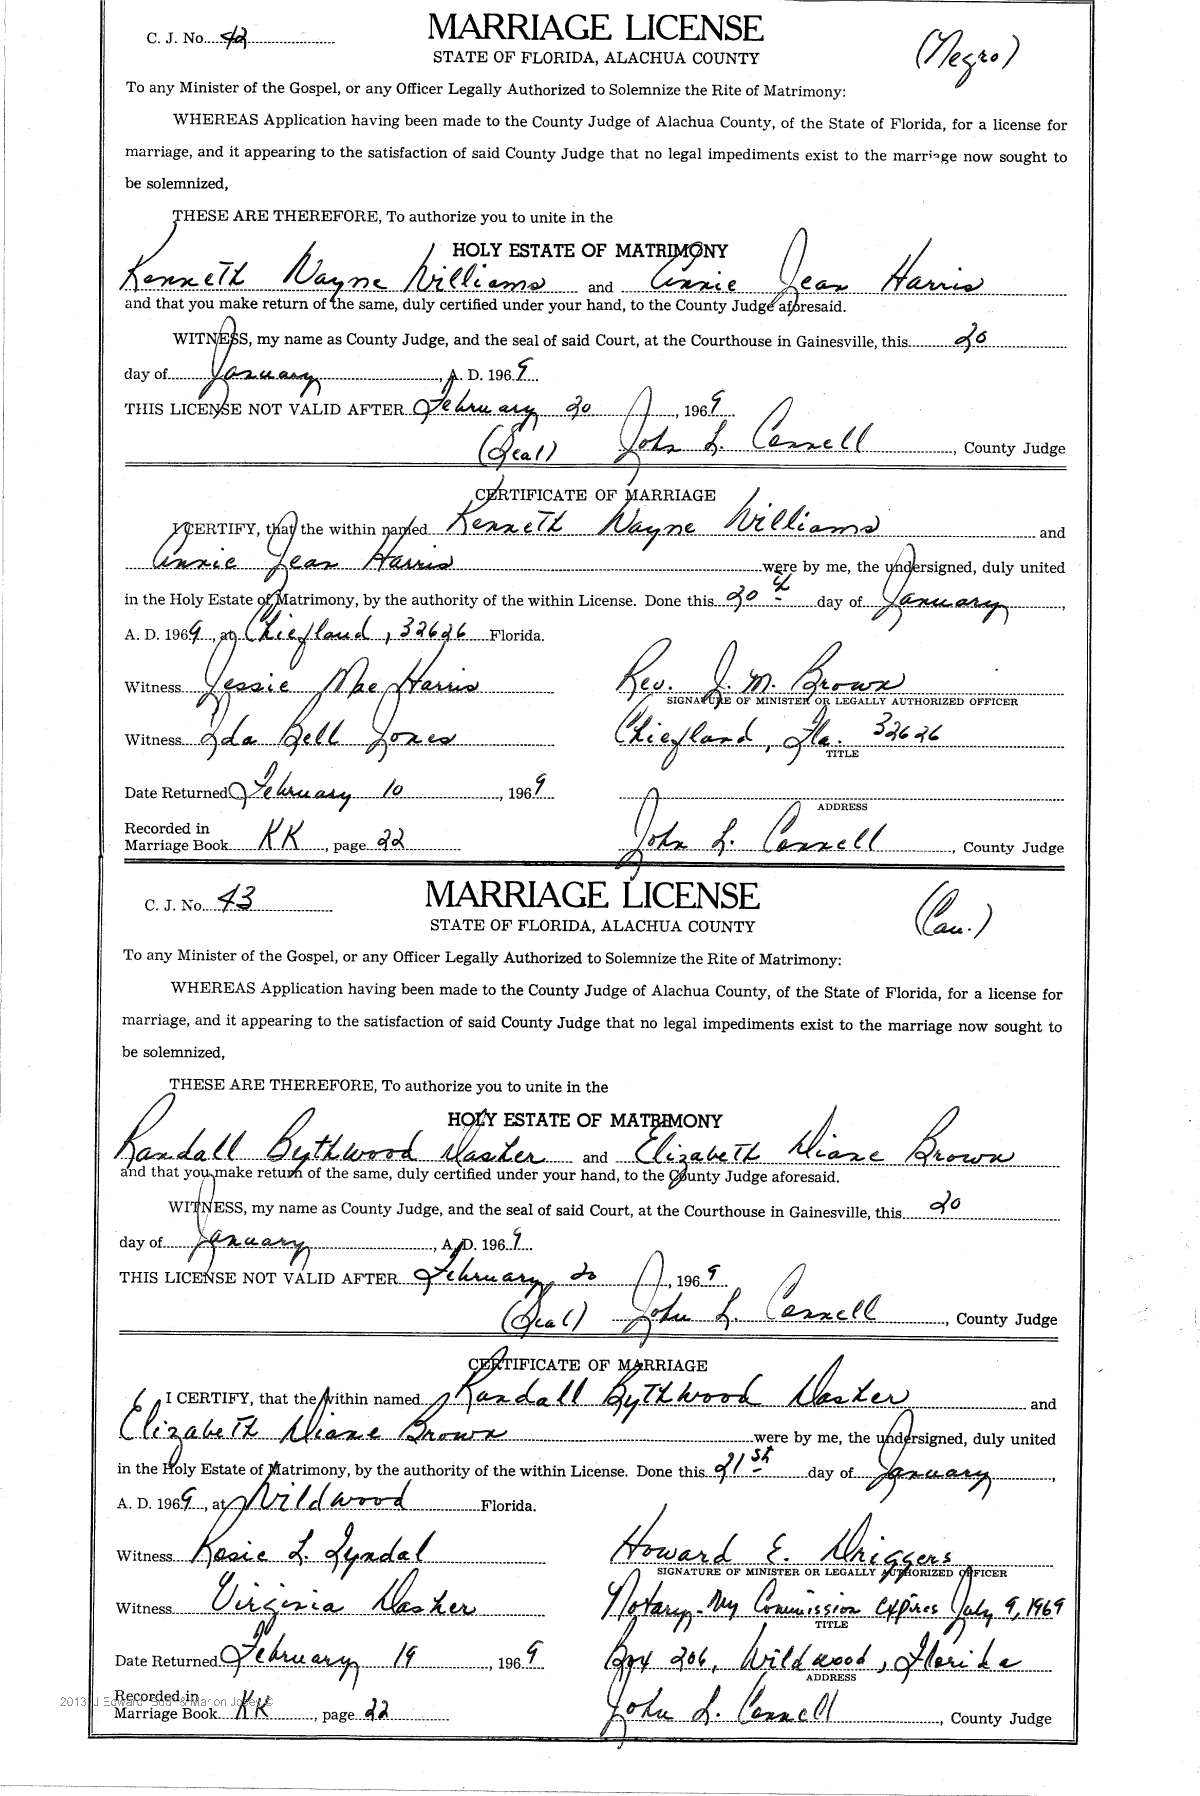 C. J. No. 42
MARRIAGE LICENSE
(Negro)
STATE OF FLORIDA, ALACHUA COUNTY
To any Minister of the Gospel, or any Officer Legally Authorized to Solemnize the Rite of Matrimony:
WHEREAS Application having been made to the County Judge of Alachua County, of the State of Florida, for a license for
marriage, and it appearing to the satisfaction of said County Judge that no legal impediments exist to the marriage now sought to
be solemnized,
THESE ARE THEREFORE, To authorize you to unite in the
HOLY ESTATE OF MATRIMONY
Kenneth Wayne Williams and Annie Jean Harris
and that you make return of the same, duly certified under your hand, to the County Judge aforesaid.
WITNESS, my name as County Judge, and the seal of said Court, at the Courthouse in Gainesville, this 20
day of January, A. D. 1969
THIS LICENSE NOT VALID AFTER February 20, 1969
(Seal) John L. Connell, County Judge
CERTIFICATE OF MARRIAGE
I CERTIFY, that the within named Kenneth Wayne Williams and
Annie Jean Harris were by me, the undersigned, duly united
in the Holy Estate of Matrimony, by the authority of the within License. Done this 20th day of January,
A. D. 1969, at Chiefland, 32626 Florida.
Witness Jessie Mae Harris Rev. J. M. Brown
SIGNATURE OF MINISTER OR LEGALLY AUTHORIZED OFFICER
Witness Ida Bell Jones Chiefland, Fla. 32626
TITLE
Date Returned February 10, 1969
ADDRESS
Recorded in
Marriage Book KK, page 22 John L. Connell, County Judge
C. J. No. 43
MARRIAGE LICENSE
(Cau.)
STATE OF FLORIDA, ALACHUA COUNTY
To any Minister of the Gospel, or any Officer Legally Authorized to Solemnize the Rite of Matrimony:
WHEREAS Application having been made to the County Judge of Alachua County, of the State of Florida, for a license for
marriage, and it appearing to the satisfaction of said County Judge that no legal impediments exist to the marriage now sought to
be solemnized,
THESE ARE THEREFORE, To authorize you to unite in the
HOLY ESTATE OF MATRIMONY
Randall Bythwood Dasher and Elizabeth Diane Brown
and that you make return of the same, duly certified under your hand, to the County Judge aforesaid.
WITNESS, my name as County Judge, and the seal of said Court, at the Courthouse in Gainesville, this 20
day of January, A. D. 1969
THIS LICENSE NOT VALID AFTER February 20, 1969
(Seal) John L. Connell, County Judge
CERTIFICATE OF MARRIAGE
I CERTIFY, that the within named Randall Bythwood Dasher and
Elizabeth Diane Brown were by me, the undersigned, duly united
in the Holy Estate of Matrimony, by the authority of the within License. Done this 21st day of January,
A. D. 1969, at Wildwood Florida.
Witness Rosie L. Lyndal Howard E. Driggers
SIGNATURE OF MINISTER OR LEGALLY AUTHORIZED OFFICER
Witness Virginia Dasher Notary - My Commission expires July 9, 1969
TITLE
Date Returned February 19, 1969 Box 206, Wildwood, Florida
ADDRESS
Recorded in
Marriage Book KK, page 22 John L. Connell, County Judge
2013